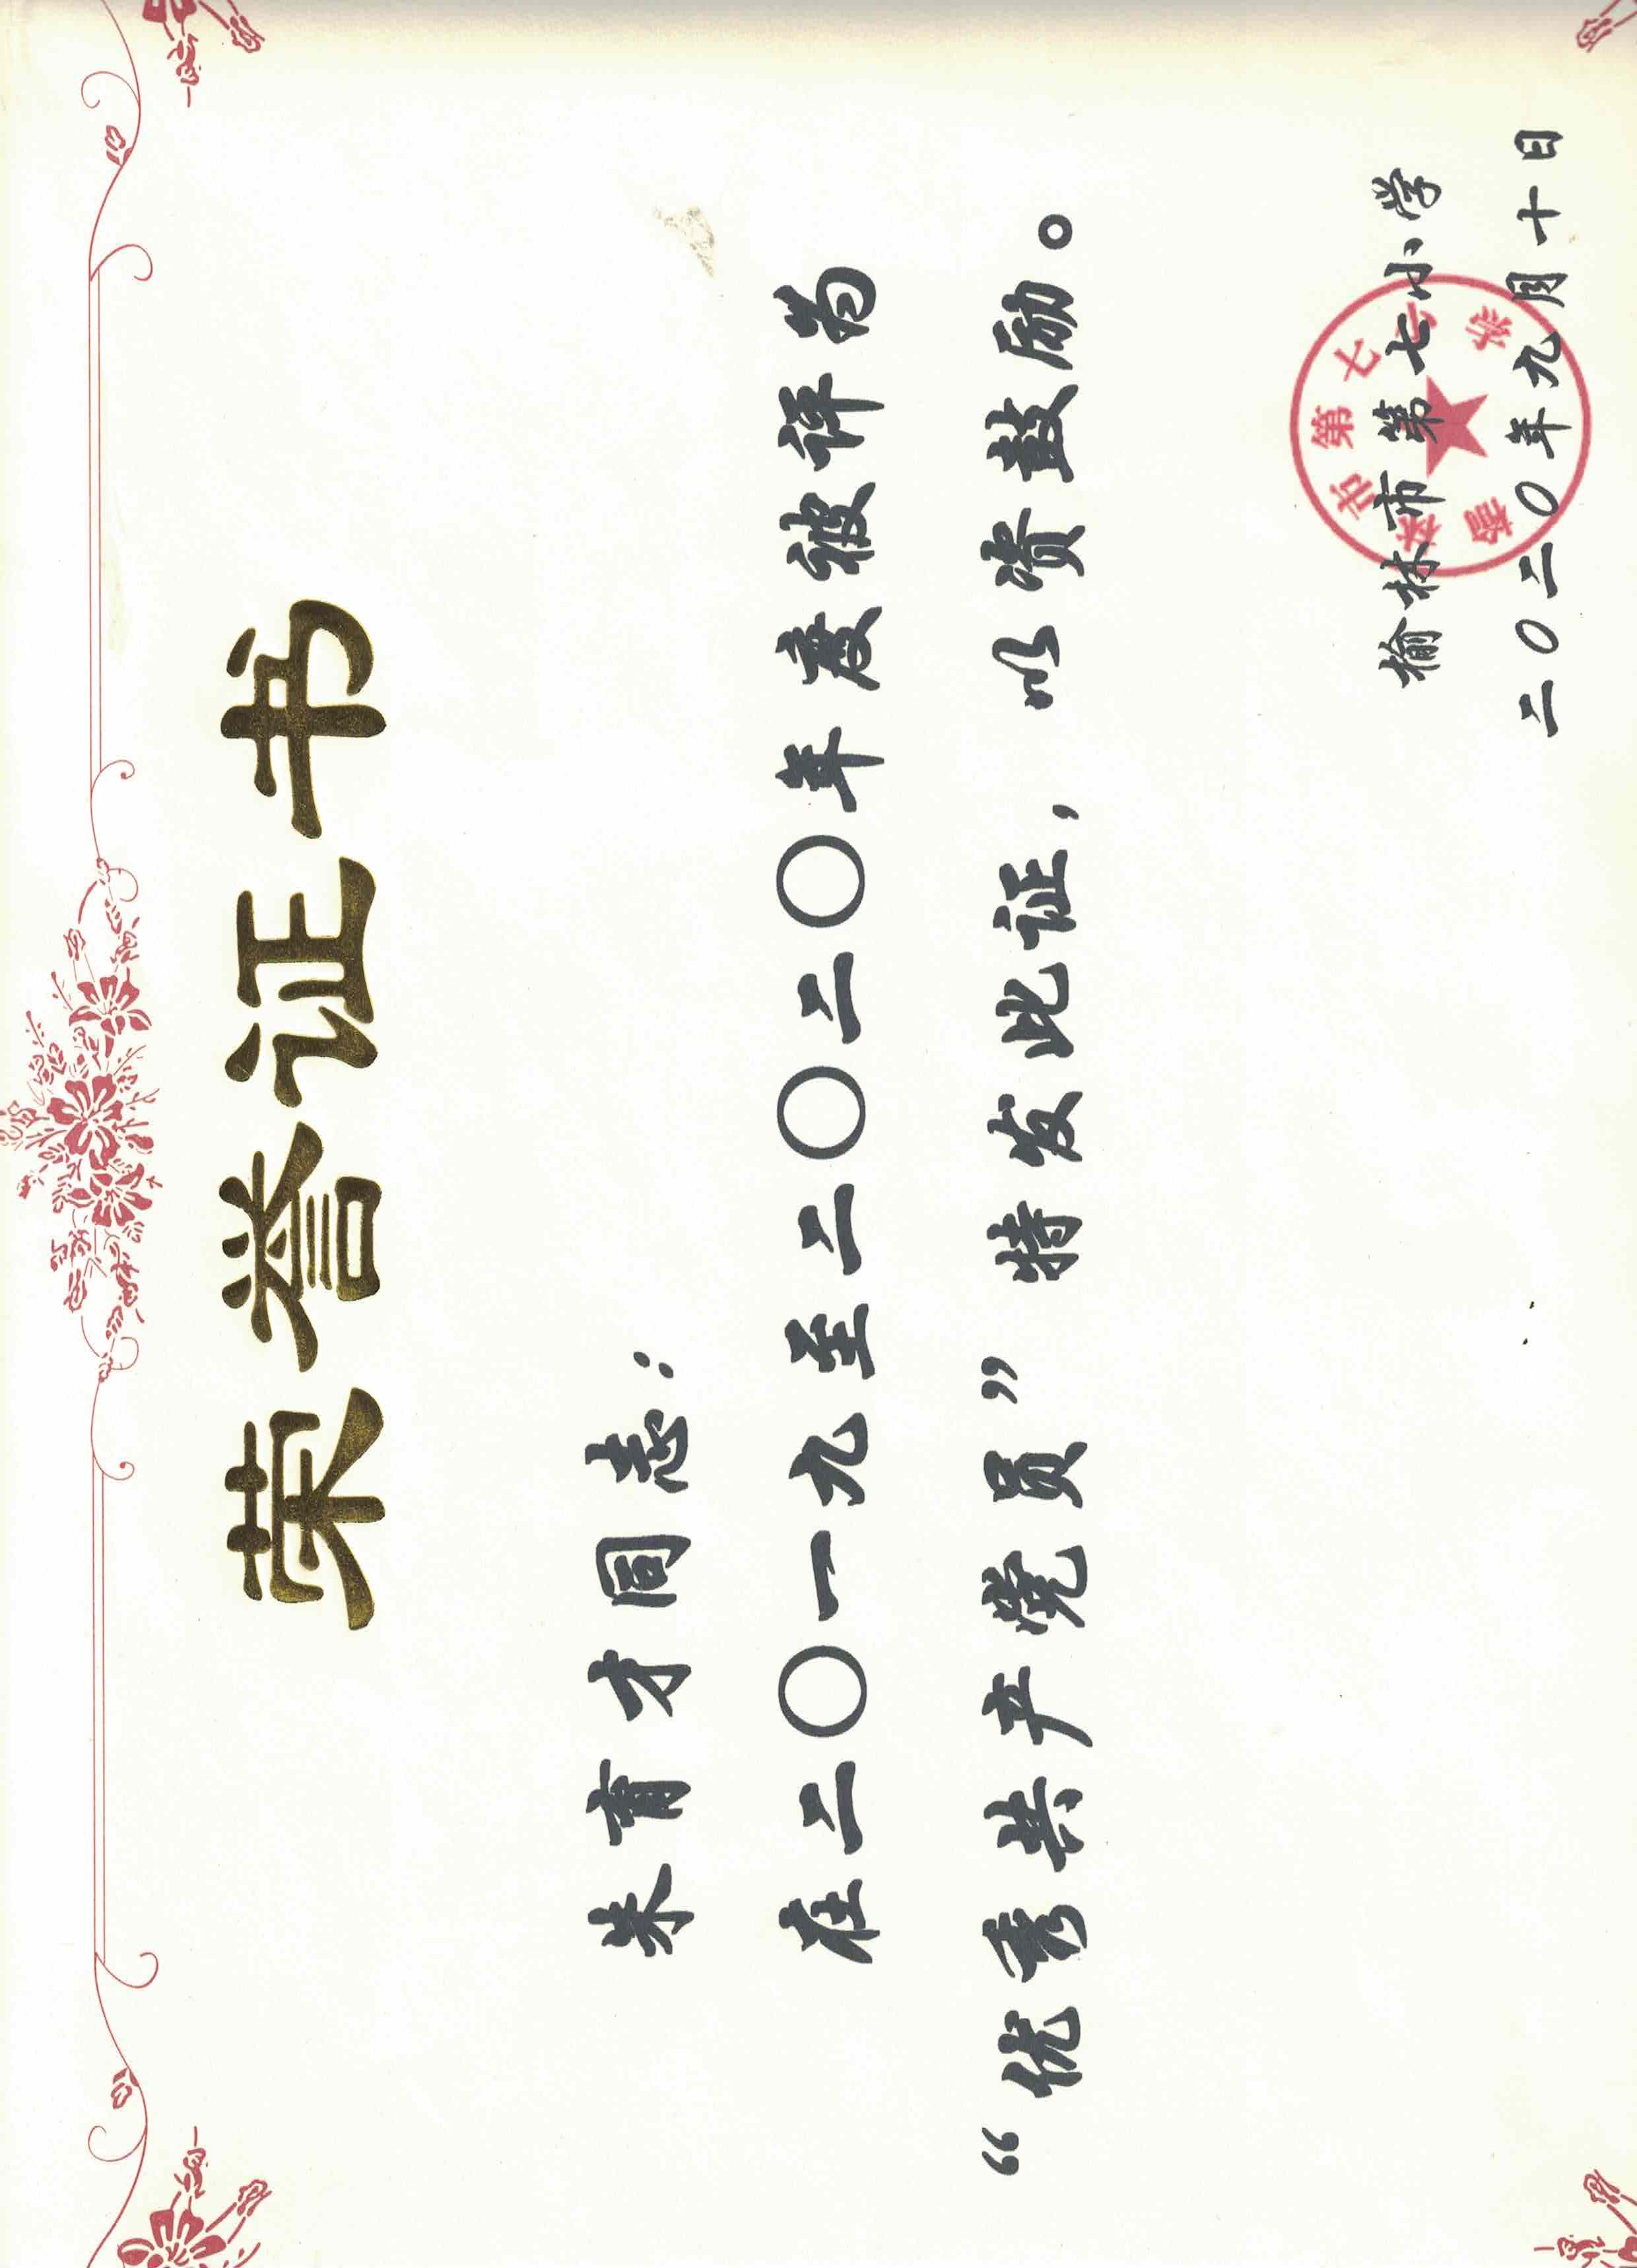 荣誉证书
朱育才同志：
在二〇一九至二〇二〇年度被评为
“优秀共产党员”特发此证，以资鼓励。
榆林市第七小学
二〇二〇年九月十日
榆林市第七小学